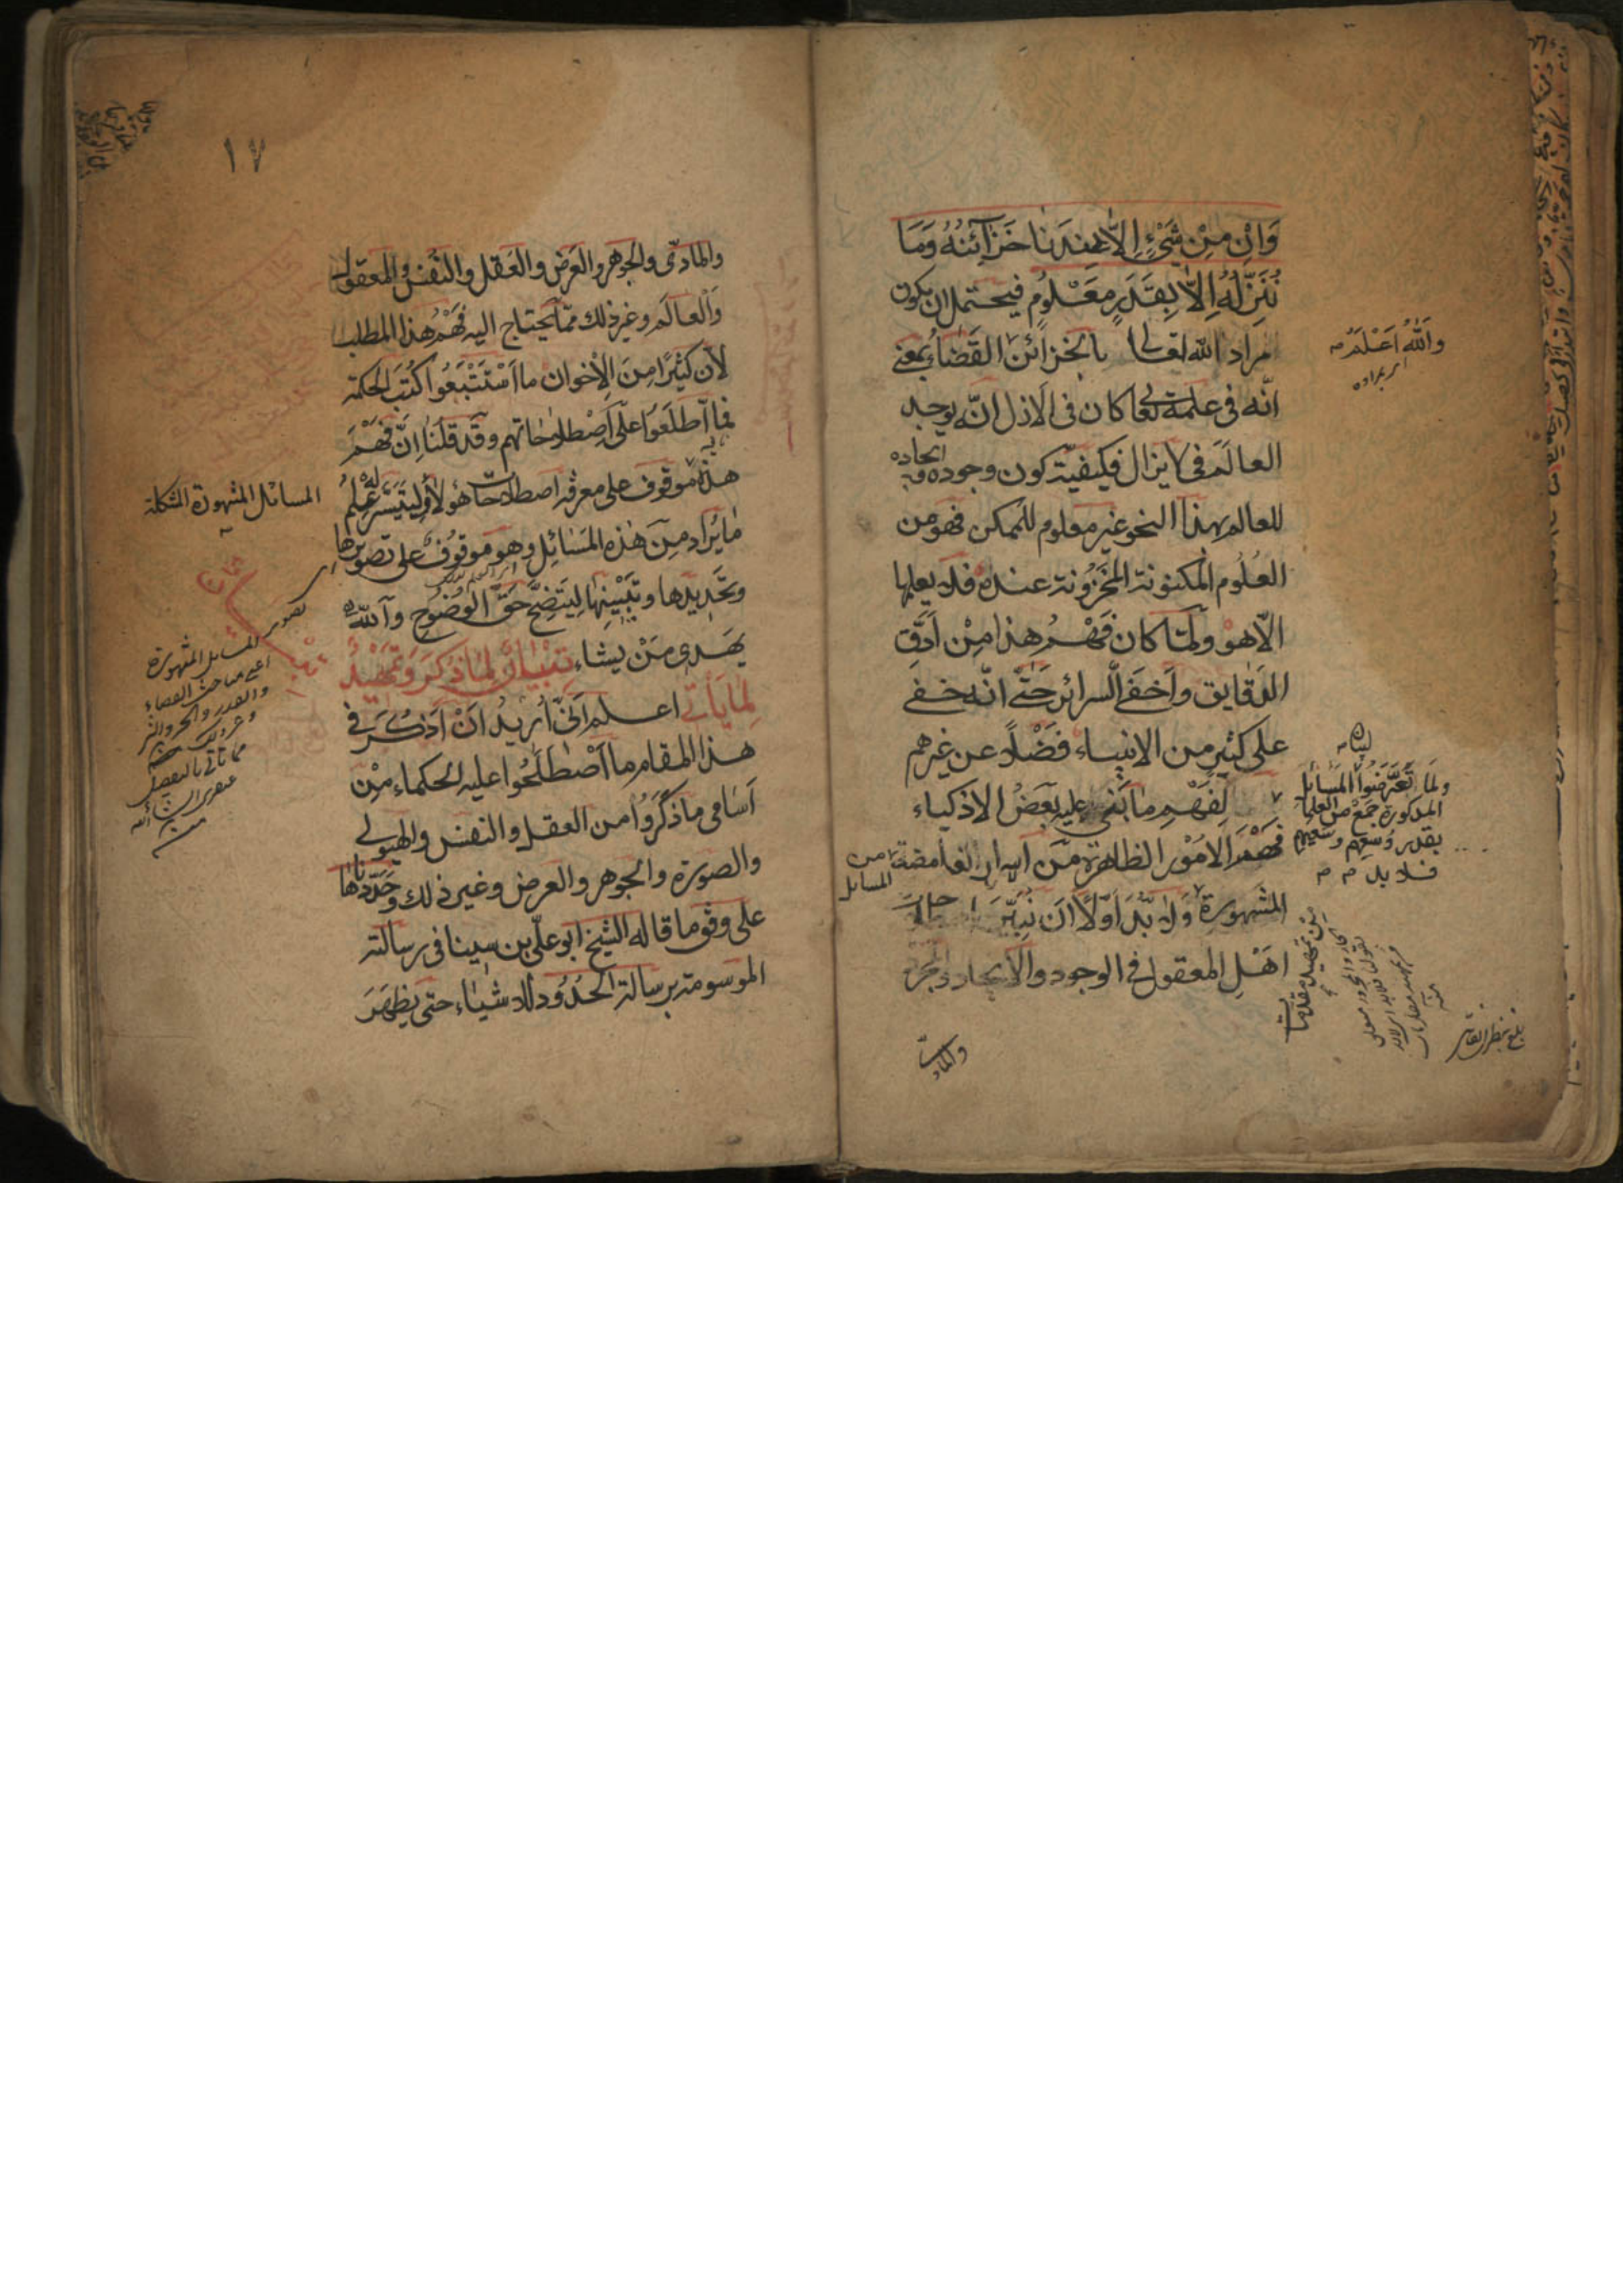 وَاِنْ مِنْ شَيْءٍ اِلَّا عِنْدَنَا خَزَآئِنُهُ وَمَا
نُنَزِّلُهُ اِلَّا بِقَدَرٍ مَعْلُومٍ فيحتمل ان يكون
مراد الله تعالى بالخزائن القضاء بمعنى
انّه في علمه تعالى كان في الازل انّه يوجد
العالم في لا يزال فكيفيّة كون وجوده
ايجاده
للعالم بهذا النحو غير معلوم للممكن فهو من
العلوم المكنونة المخزونة عنده فلا يعلمها
الّا هو ولمّا كان فهم هذا من ادقّ
الدقايق واخفى السرائر حتّى انّه خفي
على كثير من الانبياء فضلًا عن غيرهم
لفهم ما بقي عليه بعض الاذكياء
فهم الامور الظاهرة من اسرار الغامضة
من المسائل
المشهورة ولا بدّ اوّلًا ان نبيّن
اهل المعقول في الوجود والايجاد والمجرد
والمادى
والله اعلم
بمراده
لبيان
ولما تعرضوا المسائل
المذكورة جمع من العلماء
بقدر وسعهم وسعيهم
فلا بد
من تمهيد مقدمات
بلغ بنظر القاصر
١٧
والمادّى والجوهر والعرض والعقل والنفس والمعقول
والعالم وغير ذلك ممّا يحتاج اليه فهم هذا المطلب
لانّ كثيرًا من الاخوان ما استتبعوا كتب الحكمة
فما اطّلعوا على اصطلاحاتهم وقد قلنا انّ فهم
هذه موقوف على معرفة اصطلاحات هؤلاء ليتيسر له علم
ما يراد من هذه المسائل وهو موقوف على تصويرها
وتحديدها وتبيينها ليتضح حق الوضوح والله
يهدى من يشاء تبيان لما ذكر وتمهيد
لما يأتى اعلم انّى اريد ان اذكر في
هذا المقام ما اصطلحوا عليه الحكماء من
اسامى ما ذكروا من العقل والنفس والهيولى
والصورة والجوهر والعرض وغير ذلك وحدّدناها
على وفق ما قاله الشيخ ابو علىّ بن سينا في رسالته
الموسومة برسالة الحدود للاشياء حتى يظهر
المسائل المشهورة المشكلة
تصوير المسائل المشهورة
اعنى مباحث القضاء
والقدر والخير والشر
وغير ذلك
مما يأتى بالتفصيل
عنقريب انشاءالله
منه